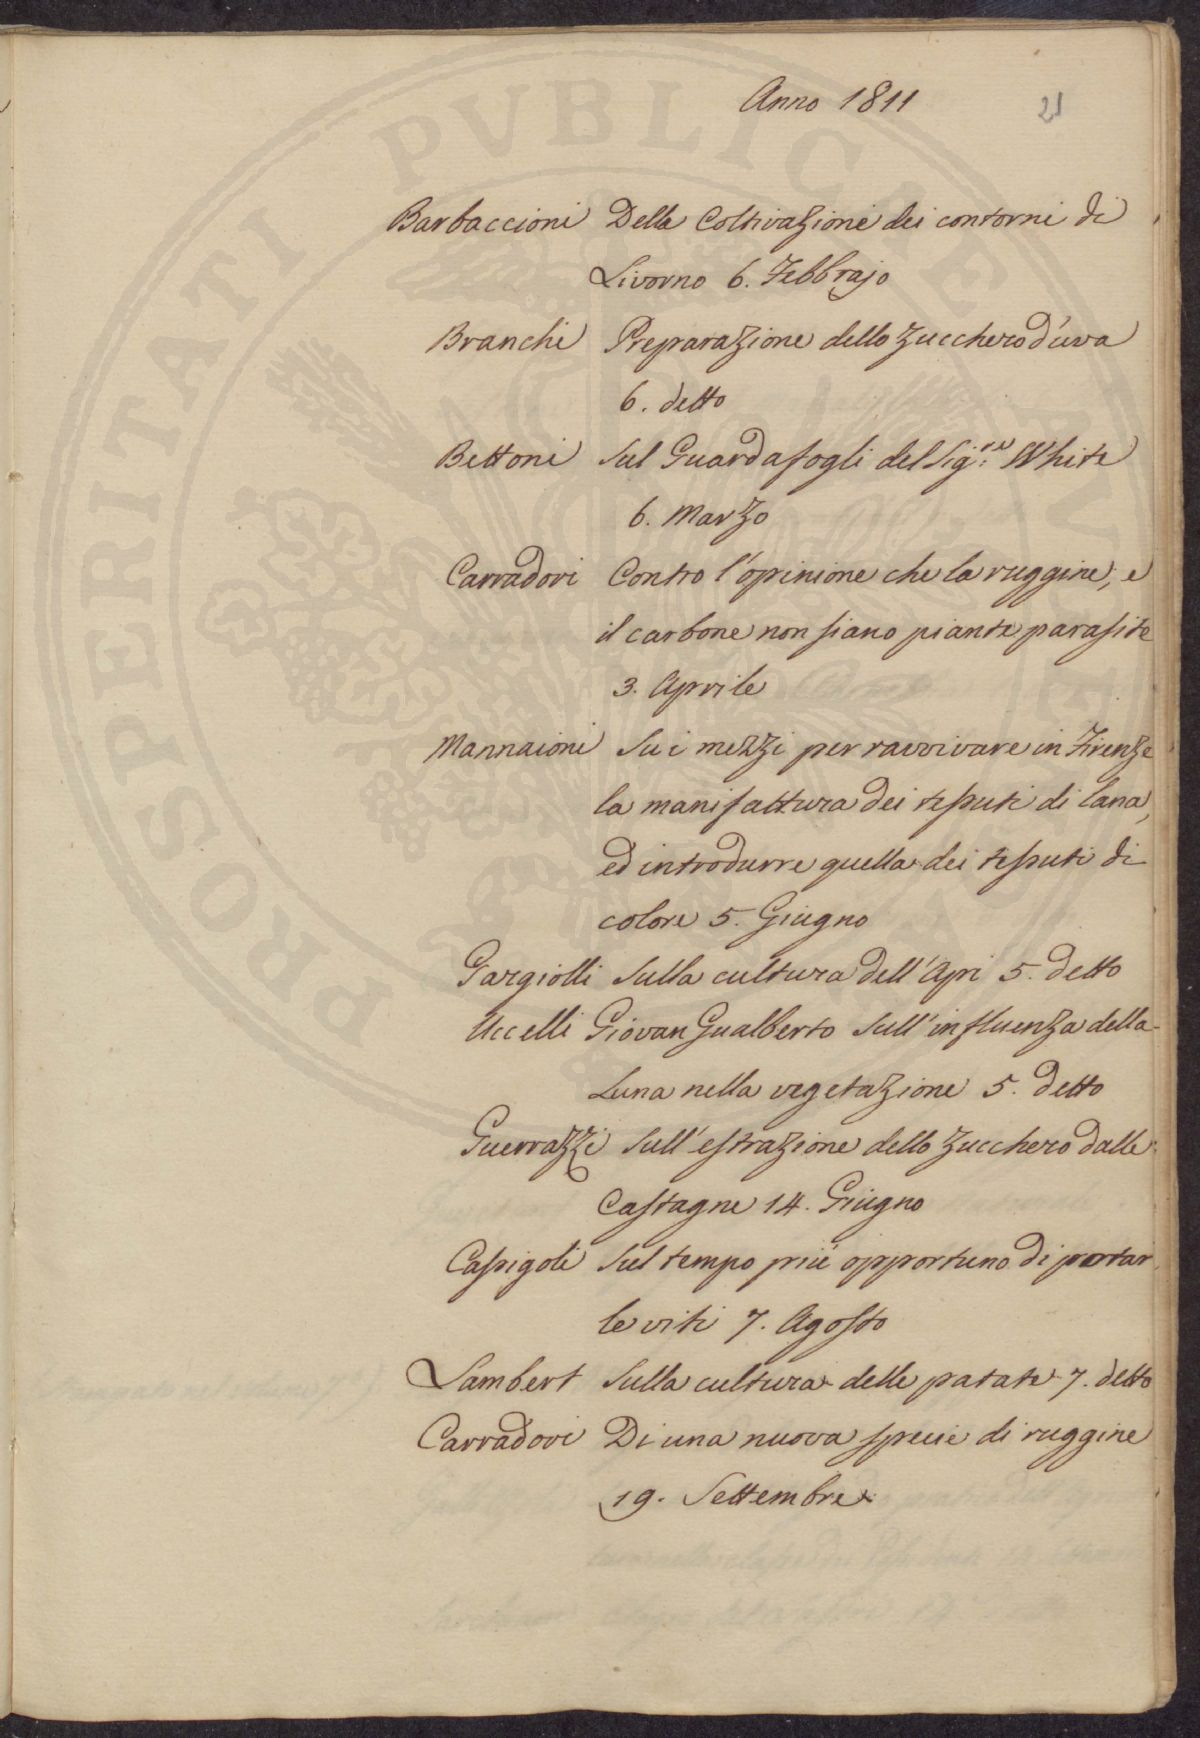 Anno 1811
21
Barbaccioni Della Coltivazione dei contorni di
Livorno 6. Febbrajo
Branchi Preparazione dello Zucchero d'uva
6. detto
Bettoni Sul Guardafogli del Sig.re White
6. Marzo
Carradori Contro l'opinione che la ruggine, e
il carbone non siano piante parasite
3. Aprile
Mannaioni Su i mezzi per ravvivare in Firenze
la manifattura dei tessuti di lana,
ed introdurre quella dei tessuti di
colore 5. Giugno
Gargiolli Sulla cultura dell'Api 5. detto
Uccelli Giovan Gualberto Sull'influenza della
Luna nella vegetazione 5. detto
Guerrazzi Sull'estrazione dello Zucchero dalle
Castagne 14. Giugno
Cassigoli Sul tempo più opportuno di potar
le viti 7. Agosto
Lambert Sulla cultura delle patate 7. detto
Carradori Di una nuova specie di ruggine
19. Settembre
PROSPERITATI PVBLICE